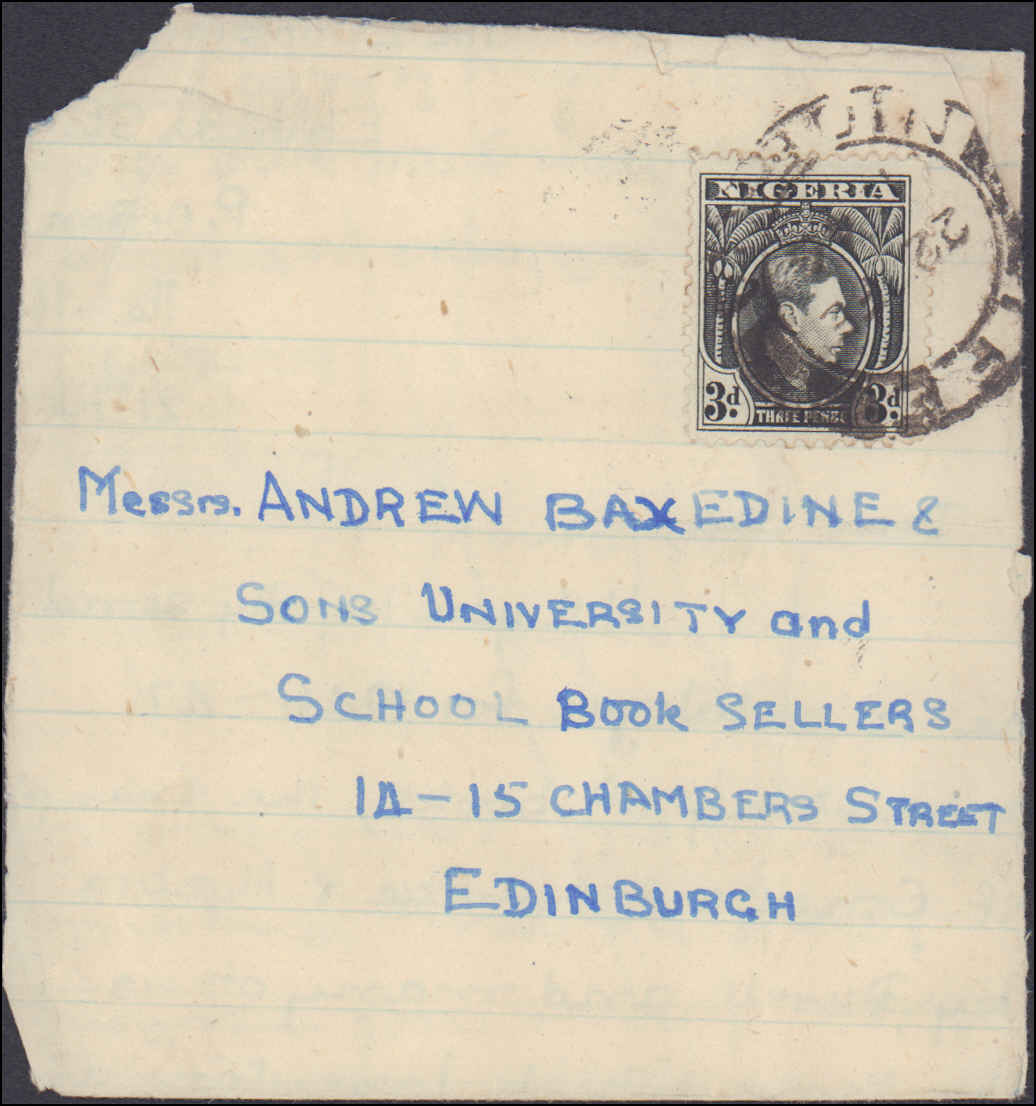 NIGERIA
3d. THREE PENCE 3d.
Messrs. ANDREW BAXEDINE &
SONS UNIVERSITY and
SCHOOL Book SELLERS
14-15 CHAMBERS STREET
EDINBURGH